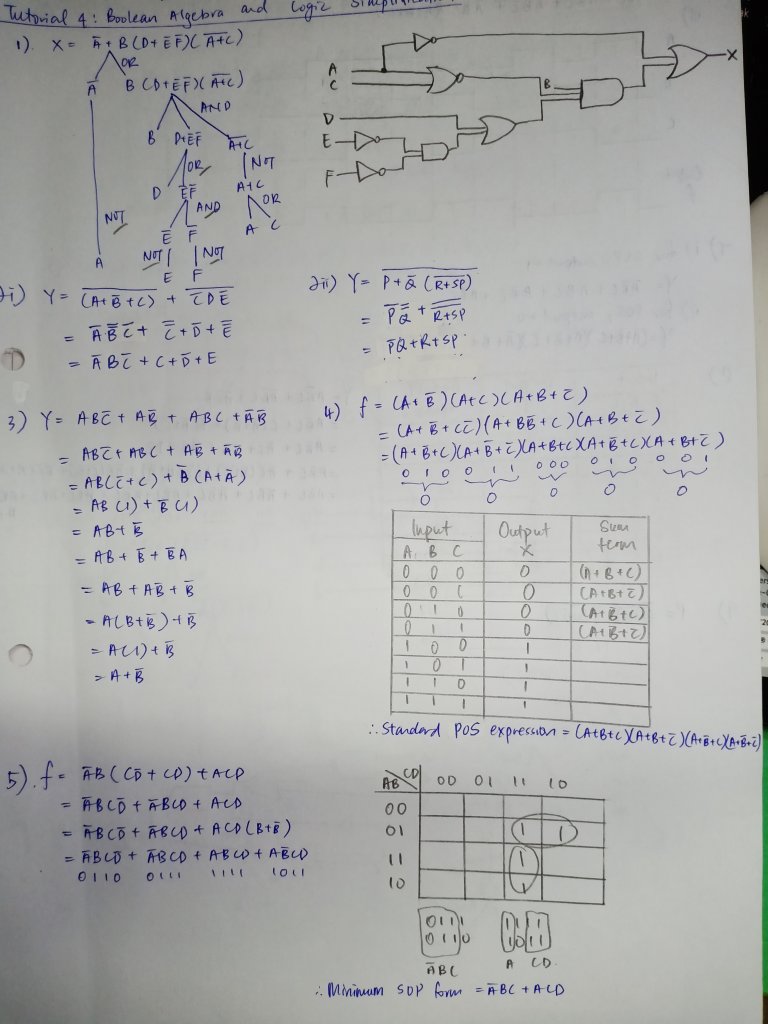 Tutorial 4: Boolean Algebra and Logic Simplification
1). X = A̅ + B (D + E̅ F̅) (A̅+̅C̅)
OR
A̅ B (D + E̅ F̅) (A̅+̅C̅)
AND
B D+E̅F̅ A̅+̅C̅
OR NOT
D E̅F̅ A+C
AND OR
NOT E̅ F̅ A C
NOT NOT
A E F
A
C
D
E
F
B
X
2i) Y = (̅A̅+̅B̿+̅C̅)̅ + C̿D̅E̿
= A̅ B̿ C̅ + C̿ + D̅ + E̿
= A̅ B C̅ + C + D̅ + E
2ii) Y = P̅+̅Q̿ ̅(̅R̅+̅S̅P̅)̅
= P̅ Q̿ + R̿+̿S̿P̿
= P̅Q + R + SP
3) Y = ABC̅ + AB̅ + ABC + A̅B̅
= ABC̅ + ABC + AB̅ + A̅B̅
= AB(C̅ + C) + B̅ (A + A̅)
= AB (1) + B̅ (1)
= AB + B̅
= AB + B̅ + B̅A
= AB + AB̅ + B̅
= A(B+B̅) + B̅
= A(1) + B̅
= A + B̅
4) f = (A + B̅) (A+C) (A + B + C̅)
= (A + B̅ + CC̅) (A + BB̅ + C) (A + B + C̅)
= (A + B̅+C) (A + B̅ + C̅) (A+B+C) (A + B̅ + C) (A + B + C̅)
0 1 0 0 1 1 0 0 0 0 1 0 0 0 1
0 0 0 0 0
Input Output Sum
A B C X term
0 0 0 0 (A + B + C)
0 0 1 0 (A + B + C̅)
0 1 0 0 (A + B̅ + C)
0 1 1 0 (A + B̅ + C̅)
1 0 0 1
1 0 1 1
1 1 0 1
1 1 1 1
∴ Standard POS expression = (A+B+C)(A+B+C̅)(A+B̅+C)(A+B̅+C̅)
5). f = A̅B (CD̅ + CD) + ACD
= A̅BCD̅ + A̅BCD + ACD
= A̅BCD̅ + A̅BCD + ACD (B+B̅)
= A̅BCD̅ + A̅BCD + ABCD + AB̅CD
0110 0111 1111 1011
AB CD 00 01 11 10
00
01 1 1
11 1
10 1
0111 1111
0110 1011
A̅BC A CD
∴ Minimum SOP form = A̅BC + ACD